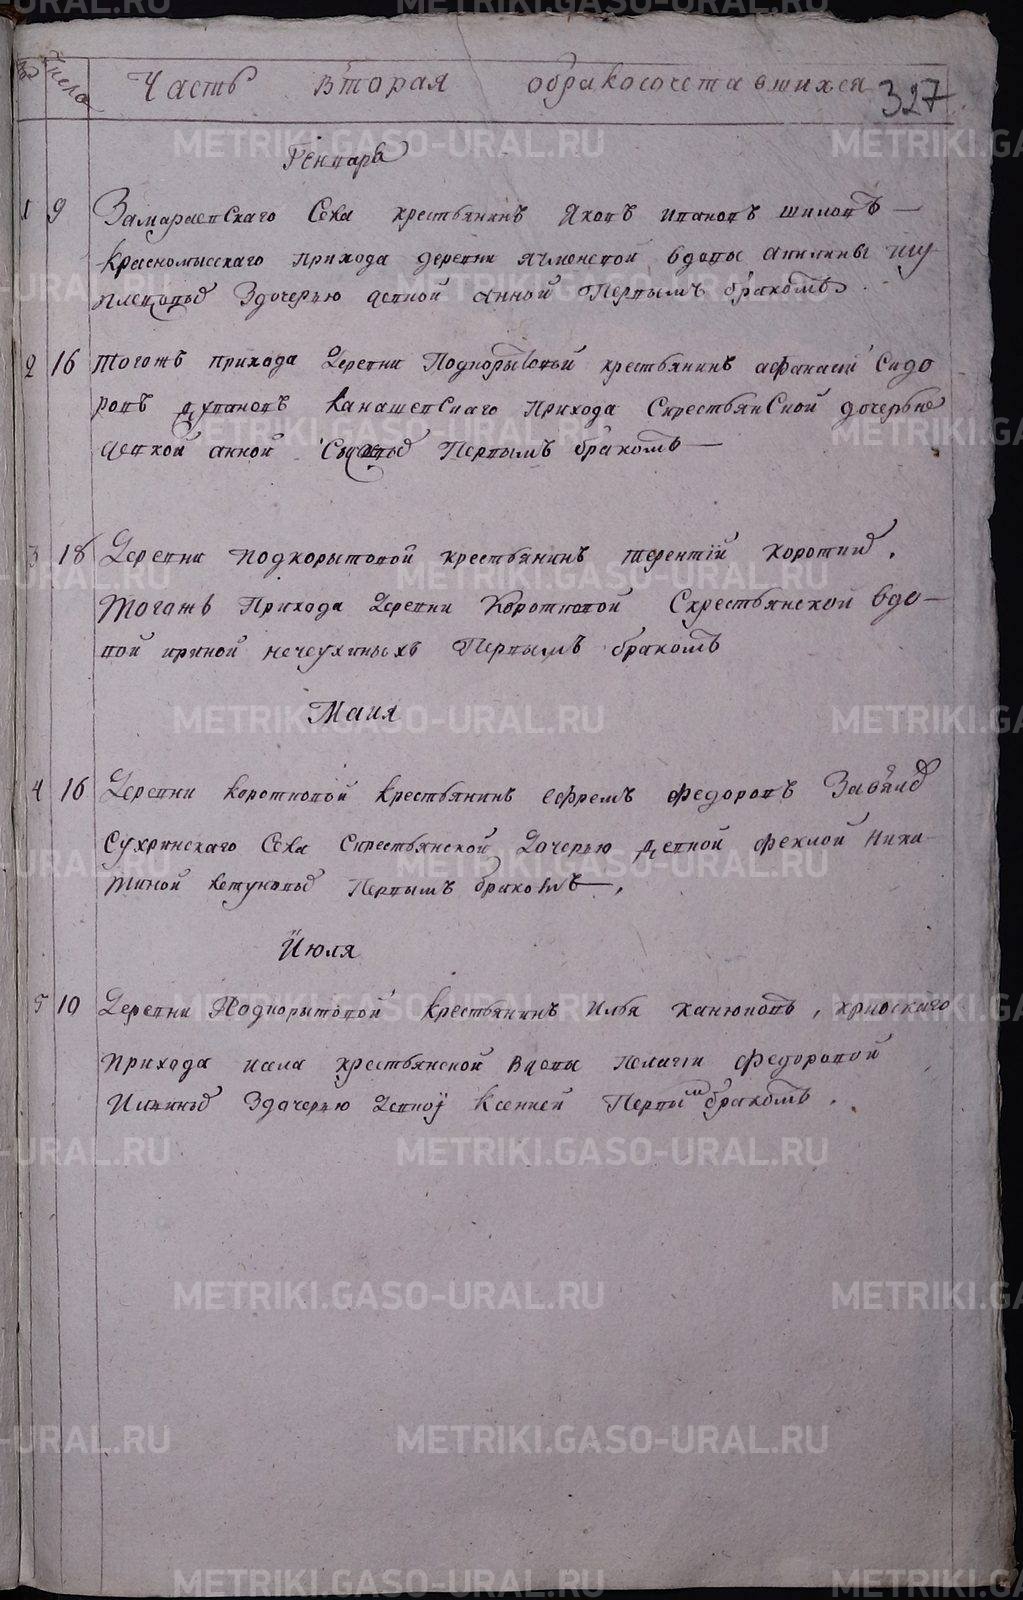 № Числа Часть вторая обракосочетавшихся 327
Генваря
1 9 Замараевскаго Села крестьянинъ Яковъ Ивановъ Шиловъ
Красномысскаго прихода деревни Ячменевой вдовы Акилины Шу
здочерью девкой Анной Первымъ бракомъ
2 16 тогожъ прихода Деревни Подкорытовой крестьянинъ афанасій Сидо
ровъ Лупановъ Канашевскаго Прихода Скрестьянской дочерью
девкой анной Первымъ бракомъ
3 18 Деревни подкорытовой крестьянинъ терентій короткий.
Тогожъ Прихода Деревни Коротковой Скрестьянской вдо
вой ириной нечеухиныхъ Первымъ бракомъ
Маия
4 16 Деревни коротковой крестьянинъ ефремъ федоровъ
Сухринскаго Села Скрестьянской Дочерью девкой феклой Ники
тиной кетуновыд Первымъ бракомъ.
Июля
5 10 Деревни Подкорытовой крестьянинъ Илья ханюковъ, кривскаго
прихода иела крестьянской вдовы Пелагии федоровой
здочерью Девкой Ксенией Первымъ бракомъ.
METRIKI.GASO-URAL.RU